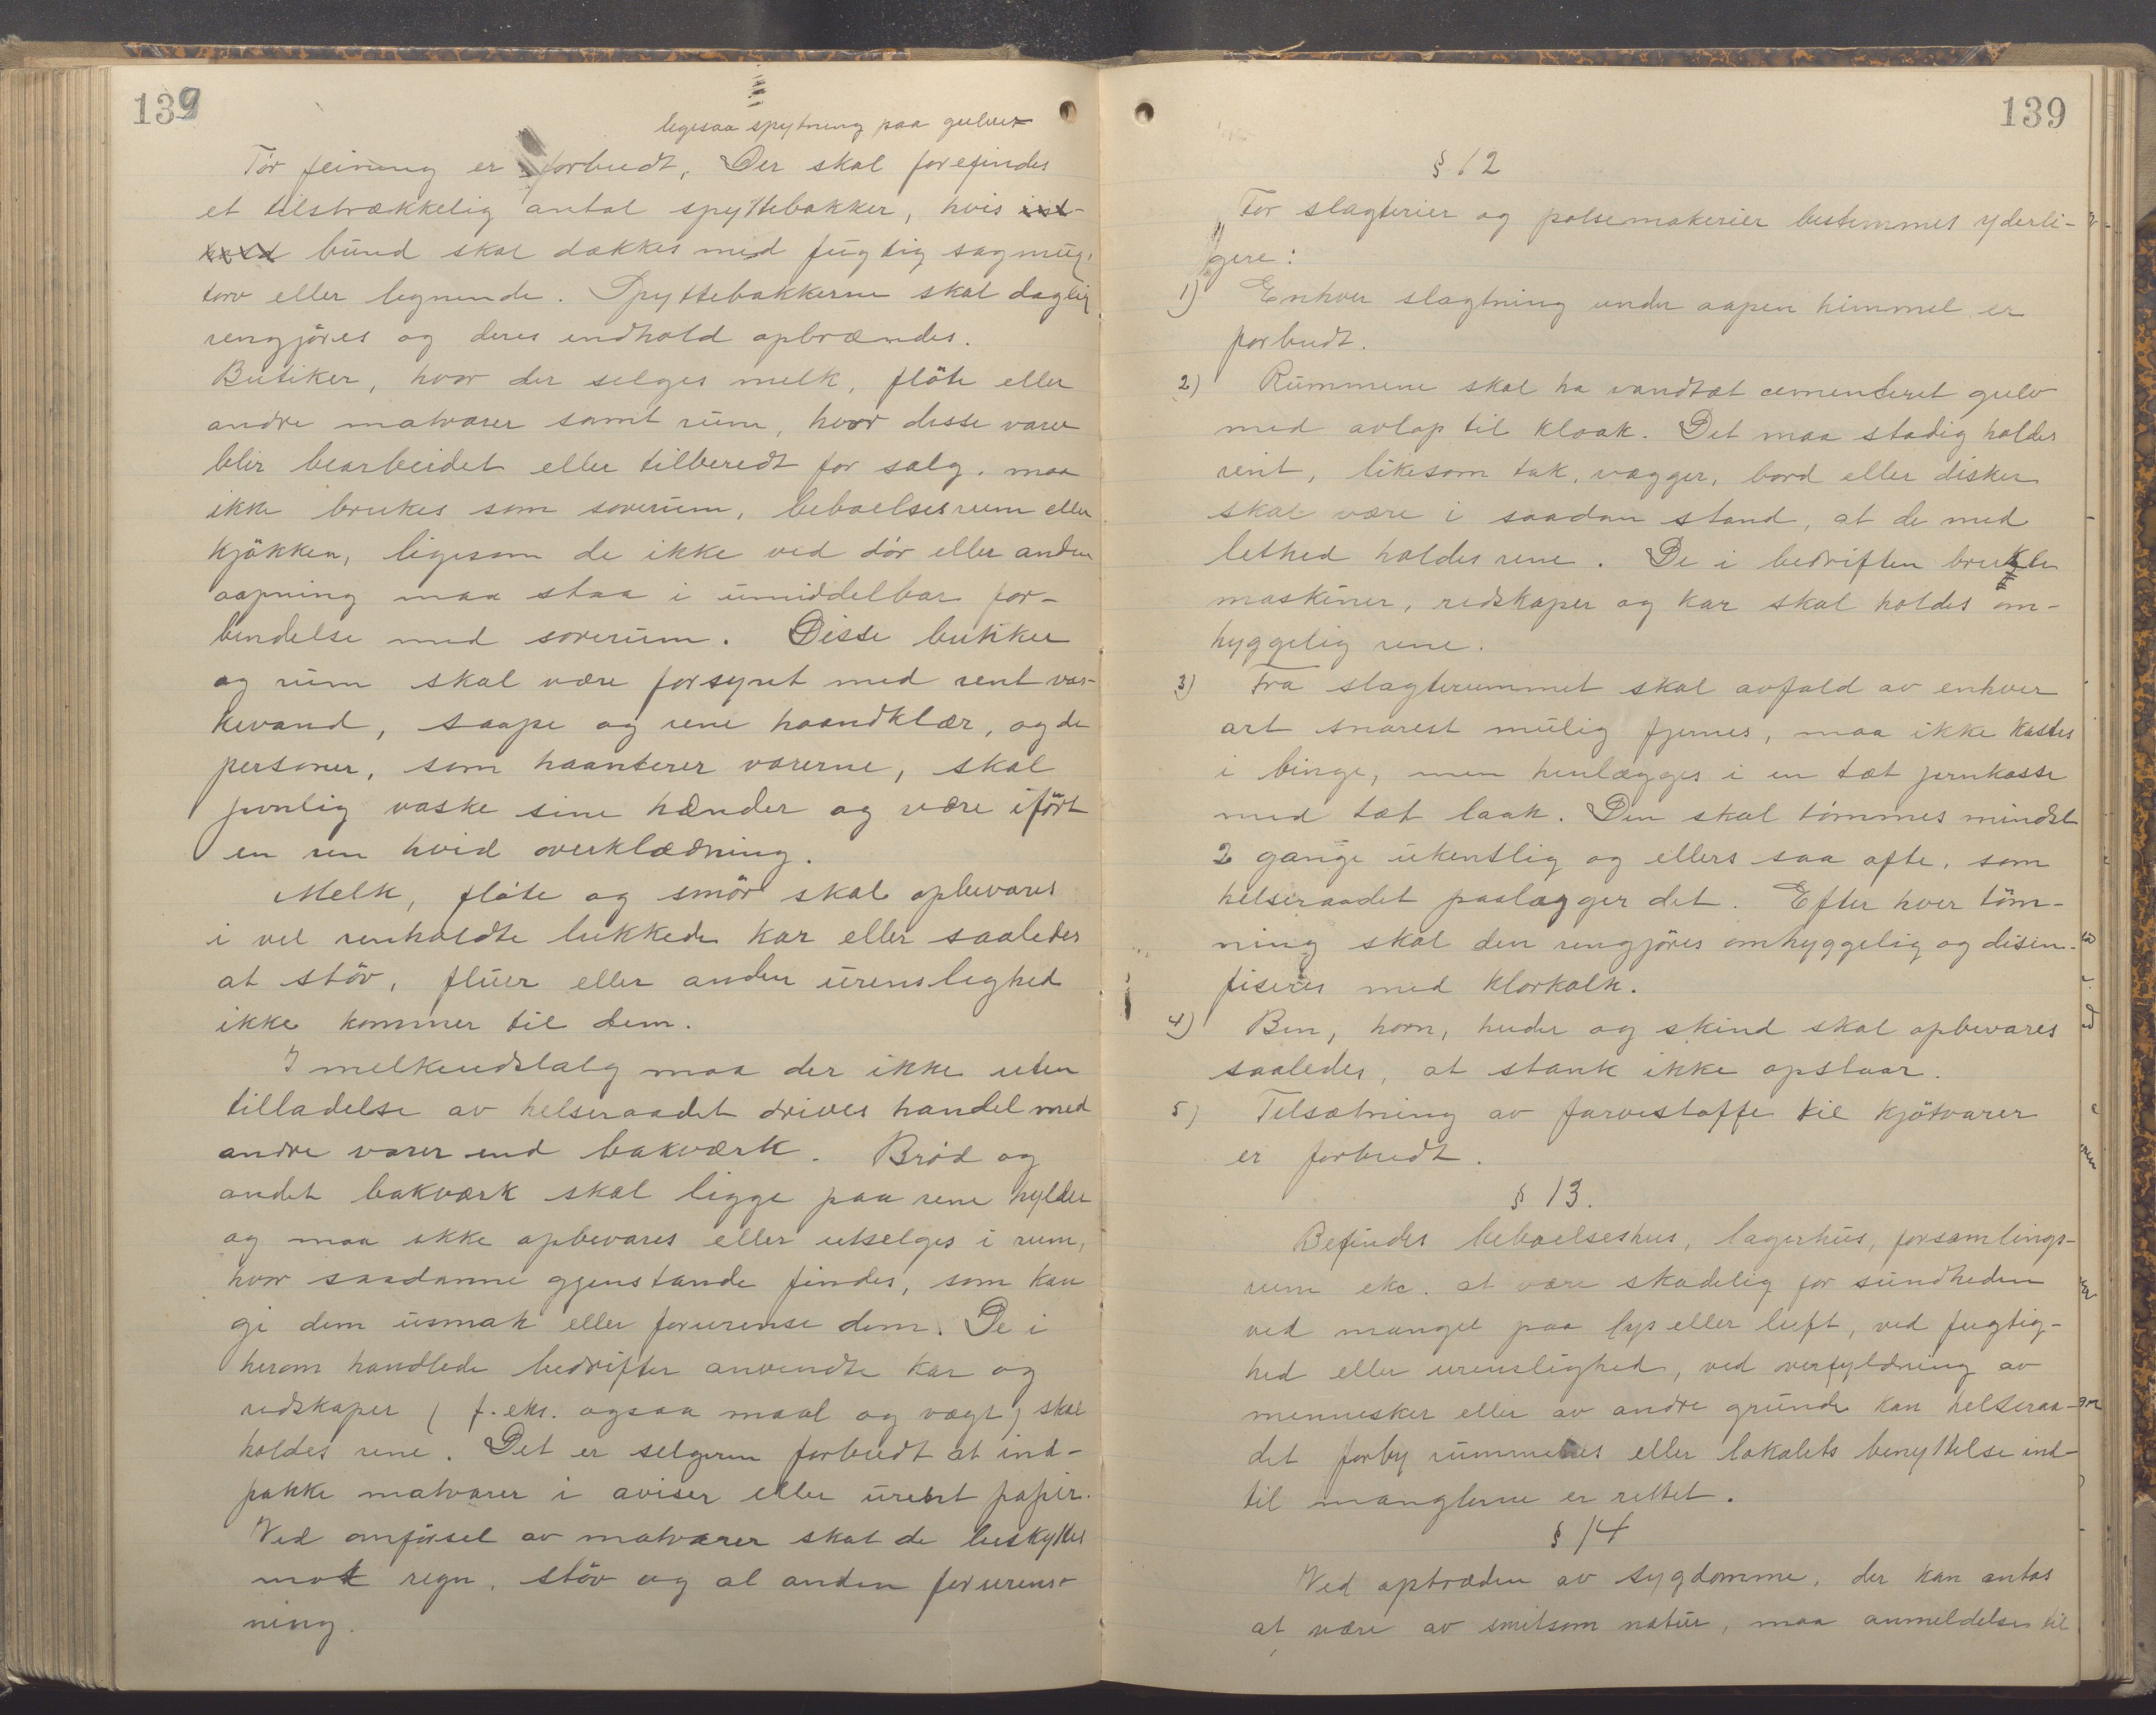 139
ligesaa spytning paa gulvet
Tör feining er forbudt, Der skal forefindes
et tilstrækkelig antal spyttebakker, hvis ind-
hold bund skal dækkes med fugtig sagmug,
torv eller lignende. Spyttebakkerne skal daglig
rengjöres og deres indhold opbrændes.
Butiker, hvor der selges melk, flöte eller
andre matvarer samt rum, hvor disse varer
blir bearbeidet eller tilberedt for salg, maa
ikke brukes som soverum, beboelsesrum eller
kjökken, ligesom de ikke ved dör eller anden
aapning maa staa i umiddelbar for-
bindelse med soverum. Disse butikker
og rum skal være forsynt med rent vas-
kevand, saape og rene haandklær, og de
personer, som haanterer varerne, skal
jevnlig vaske sine hænder og være ifört
en ren hvid overklædning.
Melk, flöte og smör skal opbevares
i vel renholdte lukkede kar eller saaledes
at stöv, fluer eller anden urenslighed
ikke kommer til dem.
I melkeudsalg maa der ikke uten
tilladelse av helseraadet drives handel med
andre varer end bakværk. Bröd og
andet bakværk skal ligge paa rene hylder
og maa ikke opbevares eller utselges i rum,
hvor saadanne gjenstande findes, som kan
gi dem usmak eller forurense dem. De i
herom handlede bedrifter anvendte kar og
redskaper (f. eks. ogsaa maal og vægt) skal
holdes rene. Det er selgeren forbudt at ind-
pakke matvarer i aviser eller urent papir.
Ved omförsel av matvarer skal de beskyttes
mot regn, stöv og al anden forurens-
ning.
139
§ 12
For slagterier og pølsemakerier bestemmes yderli-
gere:
1) Enhver slagtning under aapen himmel er
forbudt.
2) Rummene skal ha vandtæt cementeret gulv
med avlap til kloak. Det maa stadig holdes
rent, likesom tak, vægger, bord eller disker
skal være i saadan stand, at de med
lethed holdes rene. De i bedriften brukte
maskiner, redskaper og kar skal holdes om-
hyggelig rene.
3) Fra slagterummet skal avfald av enhver
art snarest mulig fjernes, maa ikke kastes
i binge, men henlægges i en tæt jernkasse
med tæt laak. Den skal tömmes mindst
2 gange ukentlig og ellers saa ofte, som
helseraadet paalægger det. Efter hver töm-
ning skal den rengjöres omhyggelig og disin-
fiseres med klorkalk.
4) Ben, horn, huder og skind skal opbevares
saaledes, at stank ikke opstaar.
5) Tilsætning av farvestoffe til kjötvarer
er forbudt.
§ 13.
Befindes beboelseshus, lagerhus, forsamlings-
rum etc. at være skadelig for sundheden
ved mangel paa lys eller luft, ved fugtig-
hed eller urenslighed, ved overfyldning av
mennesker eller av andre grunde kan helseraa-
det forby rummenes eller lokalets benyttelse ind-
til manglerne er rettet.
§ 14
Ved optræden av sygdomme, der kan antas
at være av smitsom natur, maa anmeldelse til